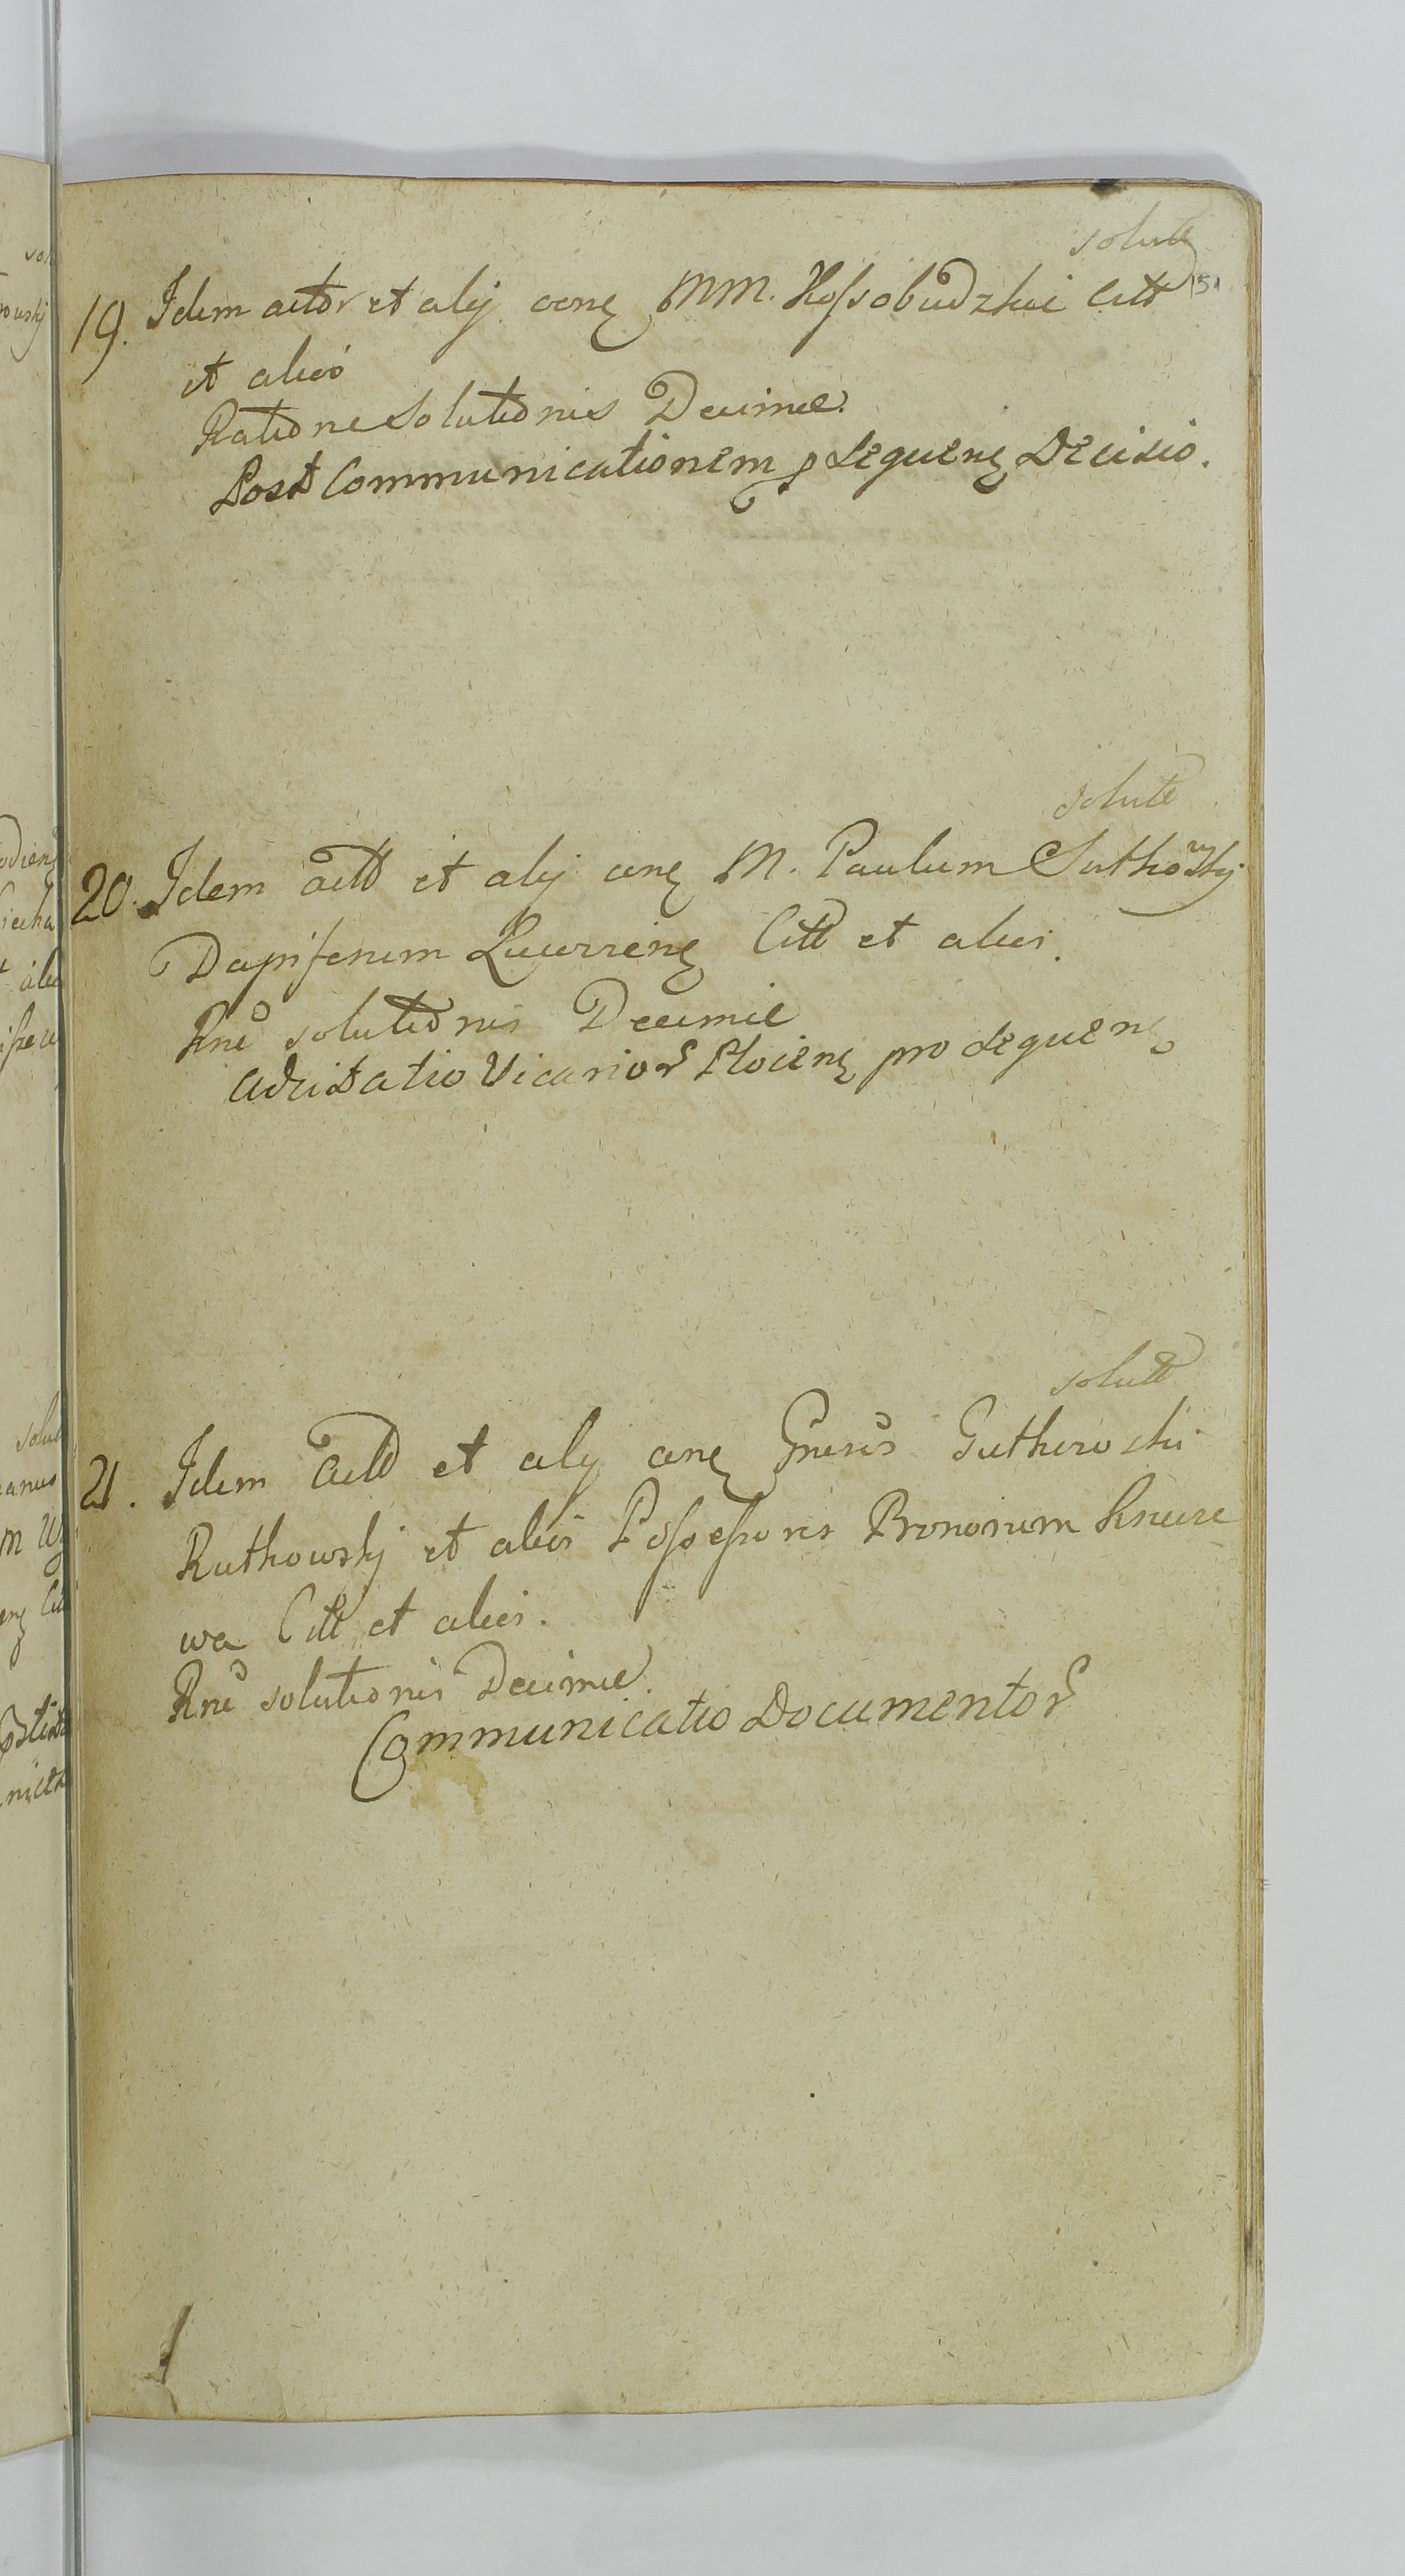 solutt
51
19. Idem actor et alij conq MM. Kossobudzkie Citt
et alios
Ratione solutionis Decimae.
Post Communicationem p sequenq Decisio.
solutt
20. Idem actt et alij conq M. Paulum Suthowskj
Dapiferum Citt et alios.
Rne solutionis Decimae
Adcitatio Vicarior Plocenq pro sequenq
solutt
21. Idem actt et alij conq Gnesos
Ruthowskj et alios Possessores Bonorum
wa Citt et alios.
Rne solutionis Decimae.
Communicatio Documentor